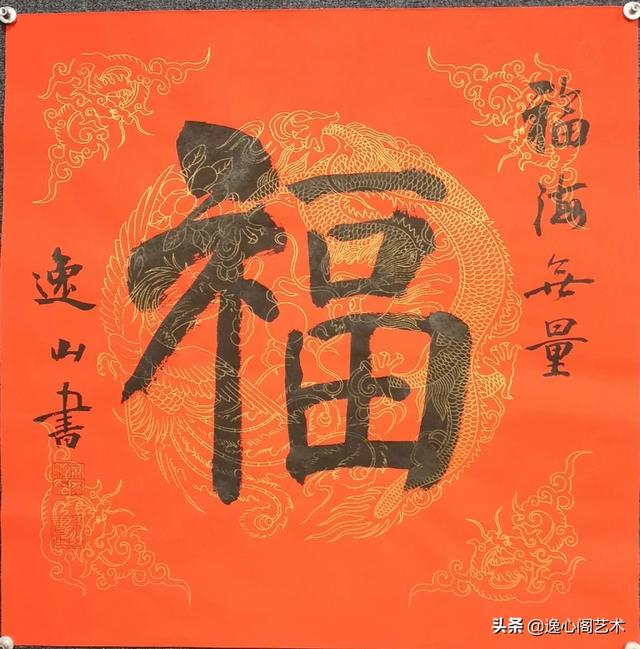 福海无量
福
逸山书
头条 @逸心阁艺术